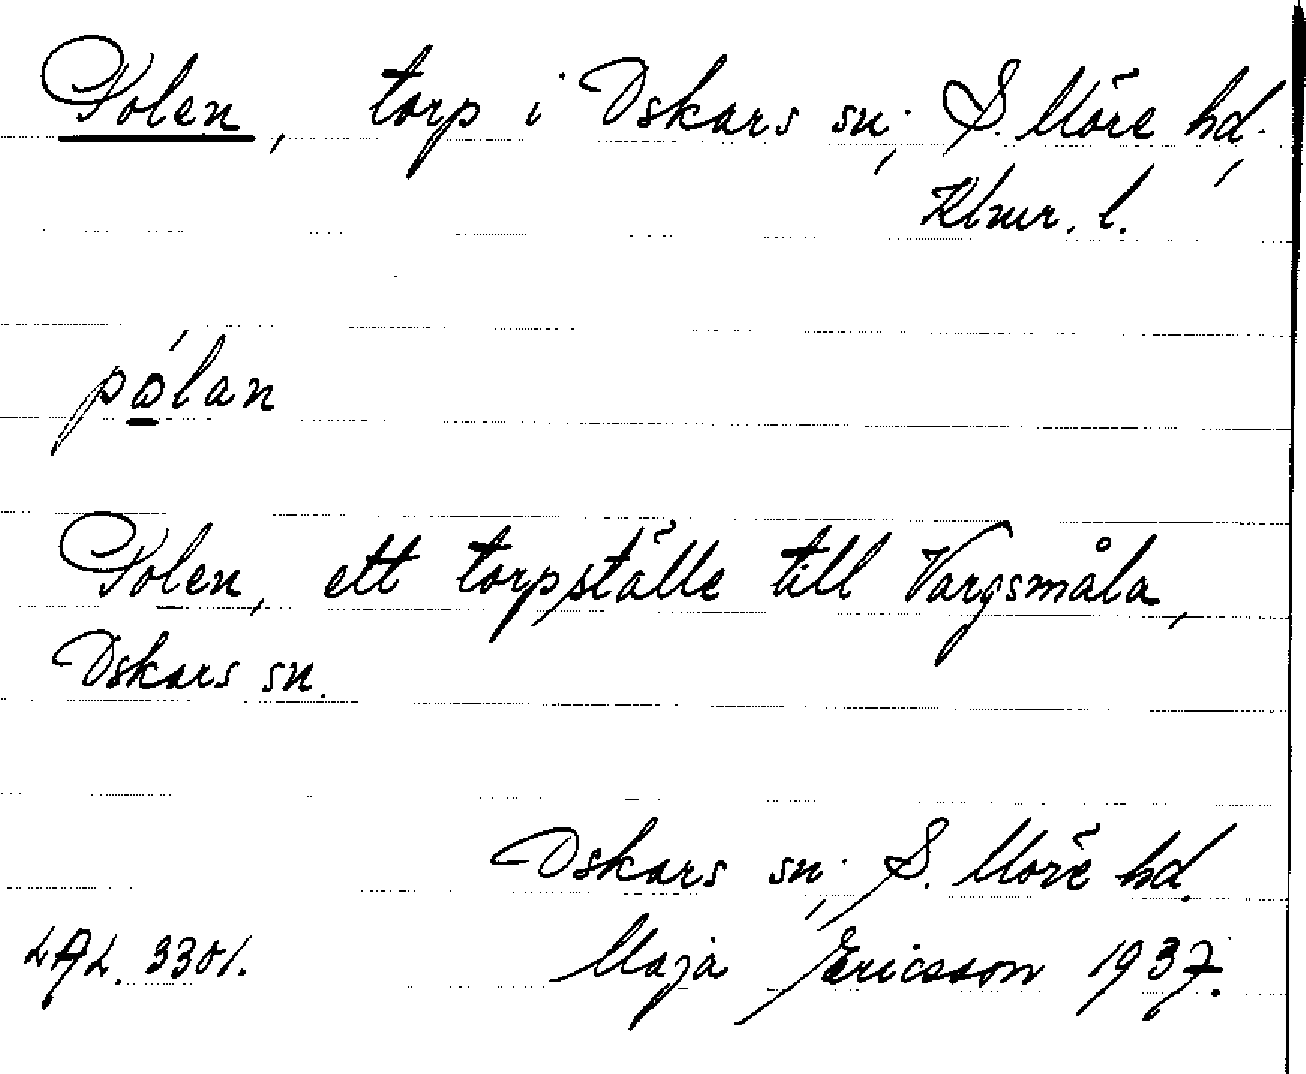 Polen, torp i Oskars sn., S. Möre hd.,
Klmr. l.
pólan
Polen, ett torpställe till Vargsmåla,
Oskars sn.
Oskars sn., S. Möre hd.
LAL. 3301. Maja Ericsson 1937.